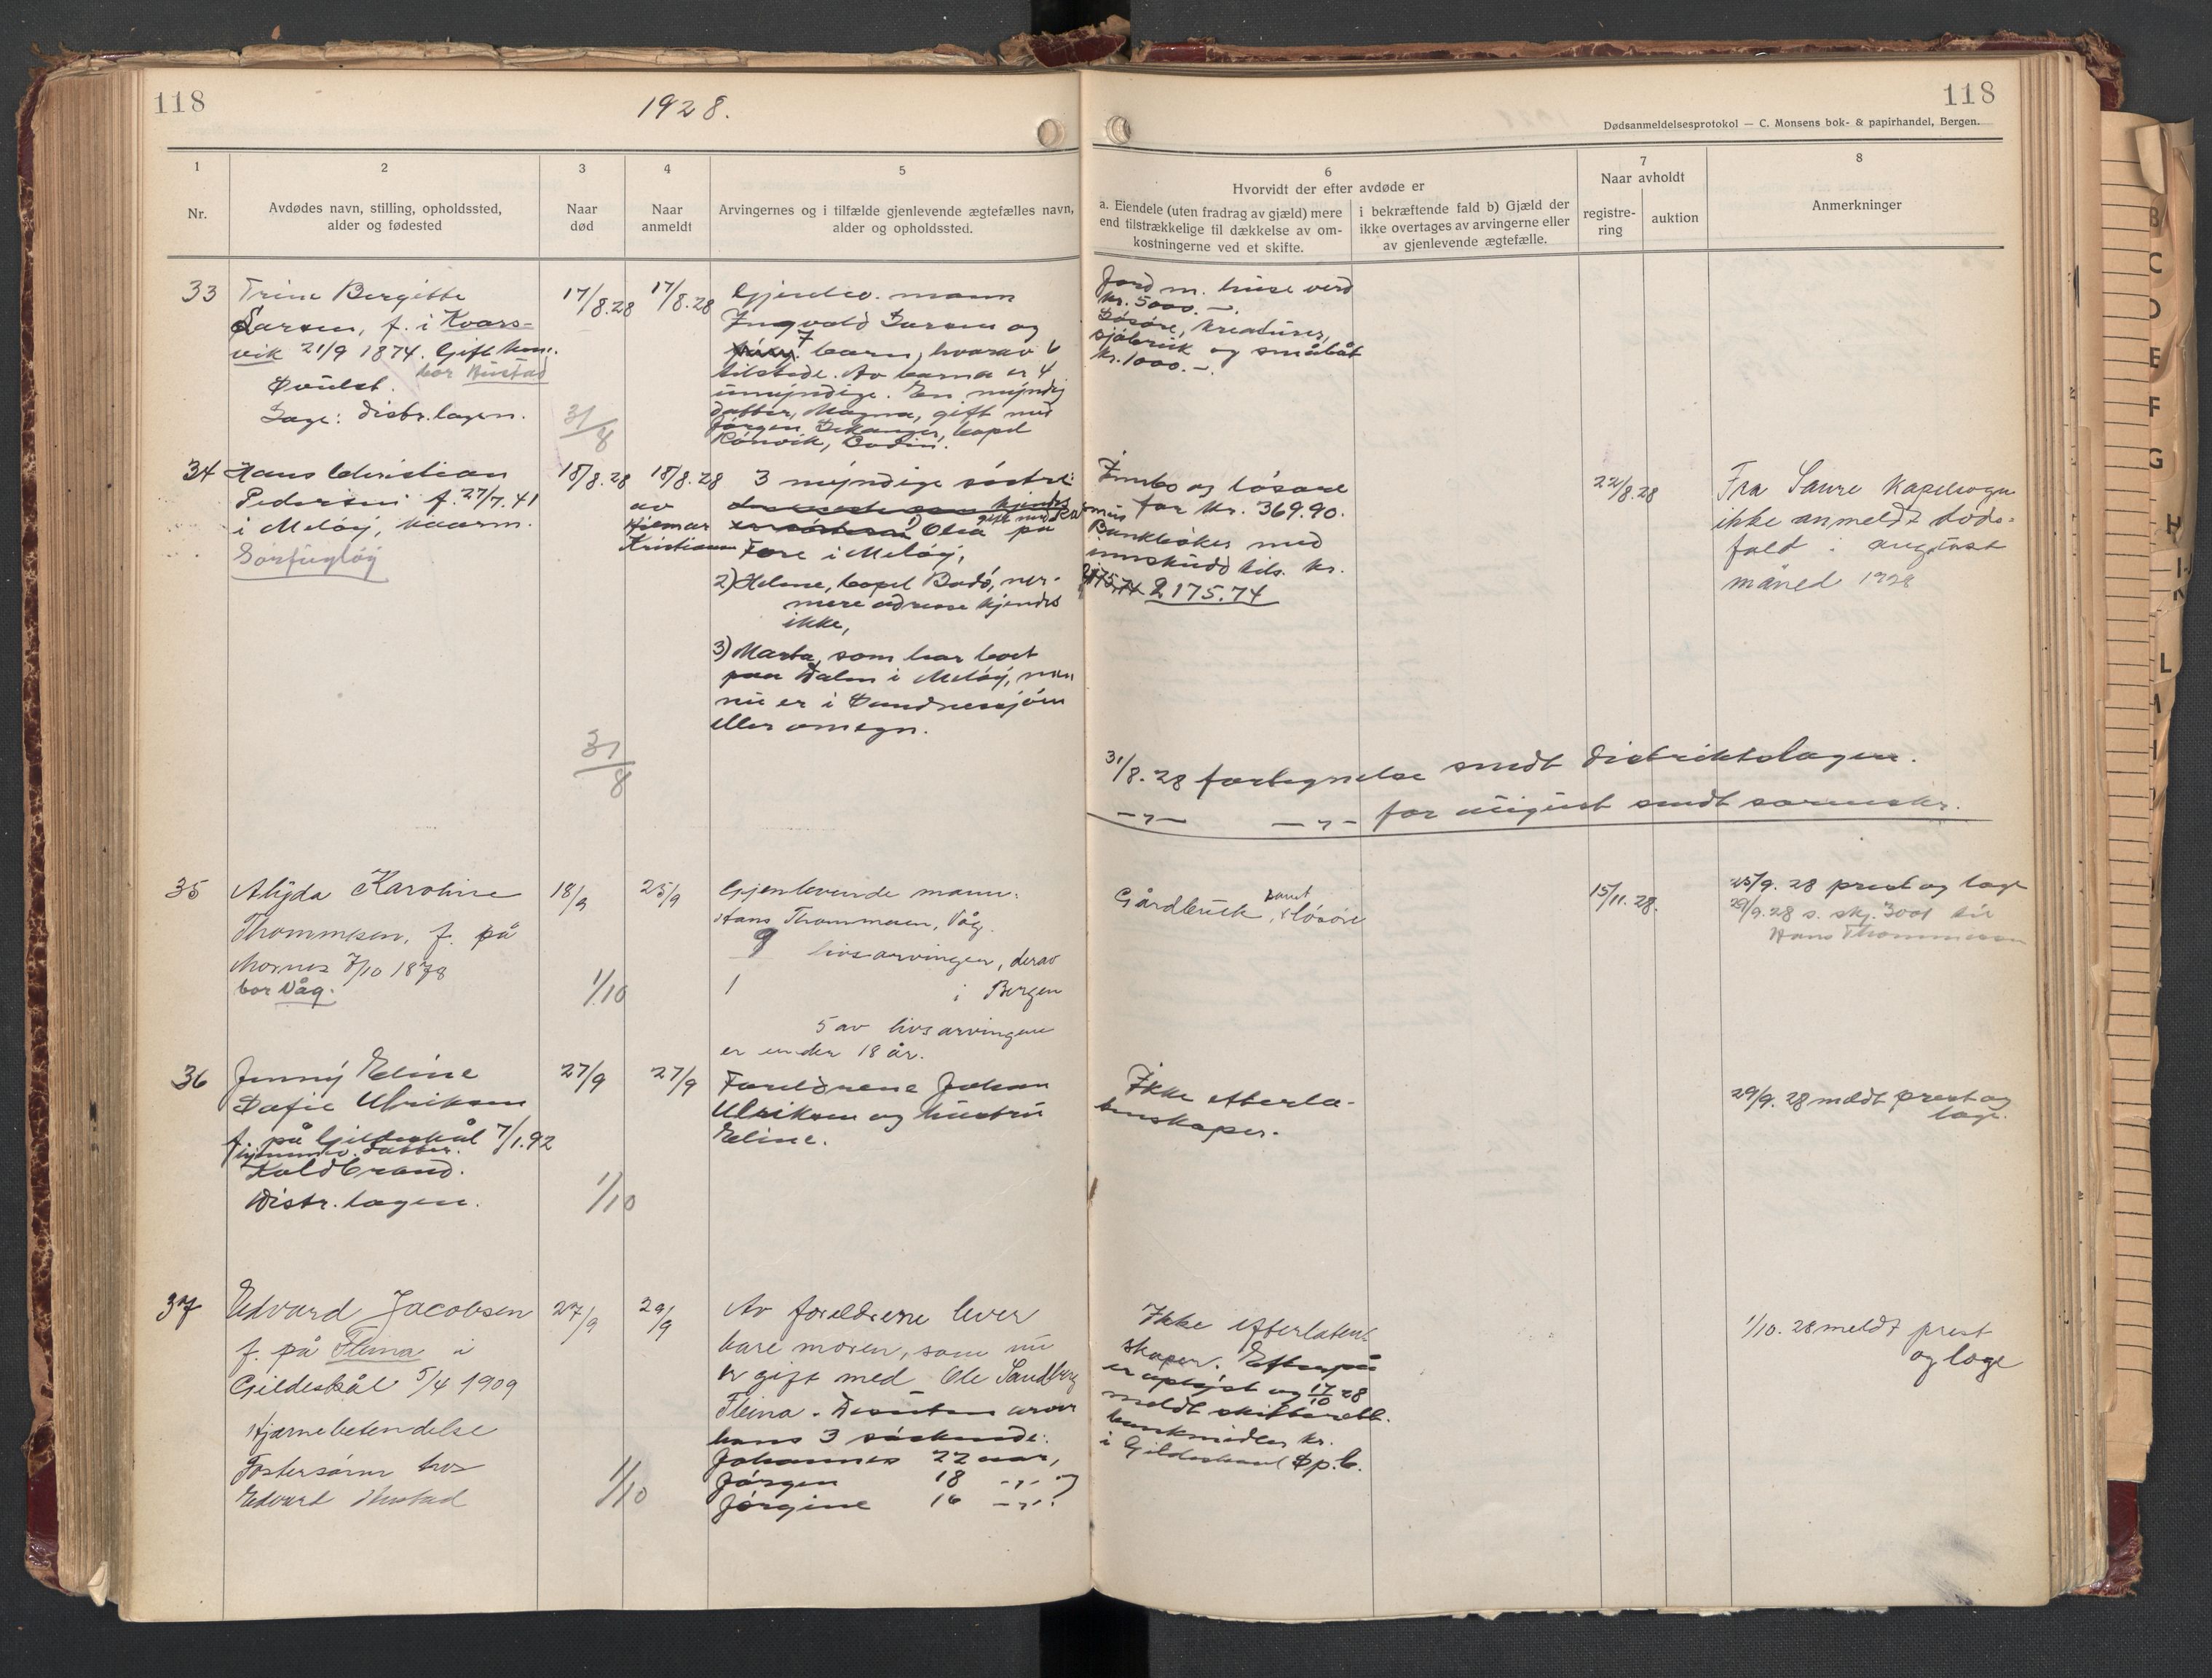 118
1928.
118
Dødsanmeldelsesprotokol — C. Monsens bok- & papirhandel, Bergen.
1
Nr.
2
Avdødes navn, stilling, opholdssted,
alder og fødested
3
Naar
død
4
Naar
anmeldt
5
Arvingernes og i tilfælde gjenlevende ægtefælles navn,
alder og opholdssted.
6
Hvorvidt der efter avdøde er
a. Eiendele (uten fradrag av gjæld) mere
end tilstrækkelige til dækkelse av om-
kostningerne ved et skifte.
i bekræftende fald b) Gjæld der
ikke overtages av arvingerne eller
av gjenlevende ægtefælle.
7
Naar avholdt
registre-
ring
auktion
8
Anmerkninger
33
Trine Bergitte
Larsen, f. i Kvars-
vik 21/9 1874. Gift kone.
bor Bustad
Læge: distr.lægen.
17/8.28
31/8
17/8.28
Gjenlev. mann
Ingvald Larsen og
7 barn, hvorav 6
tilstede. Av barna er 4
umyndige. En myndig
datter, Magna, gift med
Jørgen, bopel
Rønvik, Bodin.
Jord m. huse verd
kr. 5000.—.
Løsøre, kreaturer,
sjøbruk og småbåt
kr. 1000.—.
34
Hans Christian
Pedersen f. 27/7.41
i Meløy,
Sørfugløy
18/8.28
31/8
18/8.28
av
Hilmar
Kristiansen
3 myndige søstre:
1) Olea gift med på
Fore i Meløy,
2) Helene, bopel Bodø, ner-
mere adresse kjendes
ikke,
3) Marta, som har bodt
paa Dalen i Meløy, men
nu er i Sandnessjøen
eller omegn.
Innbo og løsøre
for kr. 369.90.
Bankbøker med
innskudd tils. kr.
2175.74
22/8.28
Fra Saure kapelsogn
ikke anmeldt døds-
fald i august
måned 1928
31/8.28 fortegnelse sendt distriktslægen.
—„— —„— for august sendt sorenskr.
35
Alyda Karoline
Thommesen, f. på
Mornes 7/10 1878
bor Våg.
18/9
1/10
25/9
Gjenlevende mann:
Hans Thommesen, Våg.
9 livsarvinger, derav
1 i Bergen
5 av livsarvingene
er under 18 år.
Gårdbruk samt løsøre
15/11.28.
25/9.28 prest og læge
29/9.28 s. skj. 3001 til
Hans Thommesen
36
Jenny Eline
Sofie Ulriksen
f. på Gildeskål 7/1.92
hjemmev. datter.
Koldbrand.
Distr.lægen.
27/9
1/10
27/9
Foreldrene Johan
Ulriksen og hustru
Eline.
Ikke efterla-
tenskaper.
29/9.28 meldt prest og
læge.
37
Edvard Jacobsen
f. på Fleina i
Gildeskål 5/4 1909
Hjernebetendelse
Fostersønn hos
Edvart Mustad
27/9
1/10
29/9
Av foreldrene lever
bare moren, som nu
er gift med Ole Sandberg
Fleina. Desuten arver
hans 3 søskende:
Johannes 22 aar,
Jørgen 18 —„— og
Jørgine 16 —„—.
Ikke efterlaten-
skaper. Efterpå
er oplyst og 17/10 28
meldt skifterett.
bankmidler kr.
i Gildeskaal Spb.
1/10.28 meldt prest
og læge
B
C
D
E
F
G
H
L